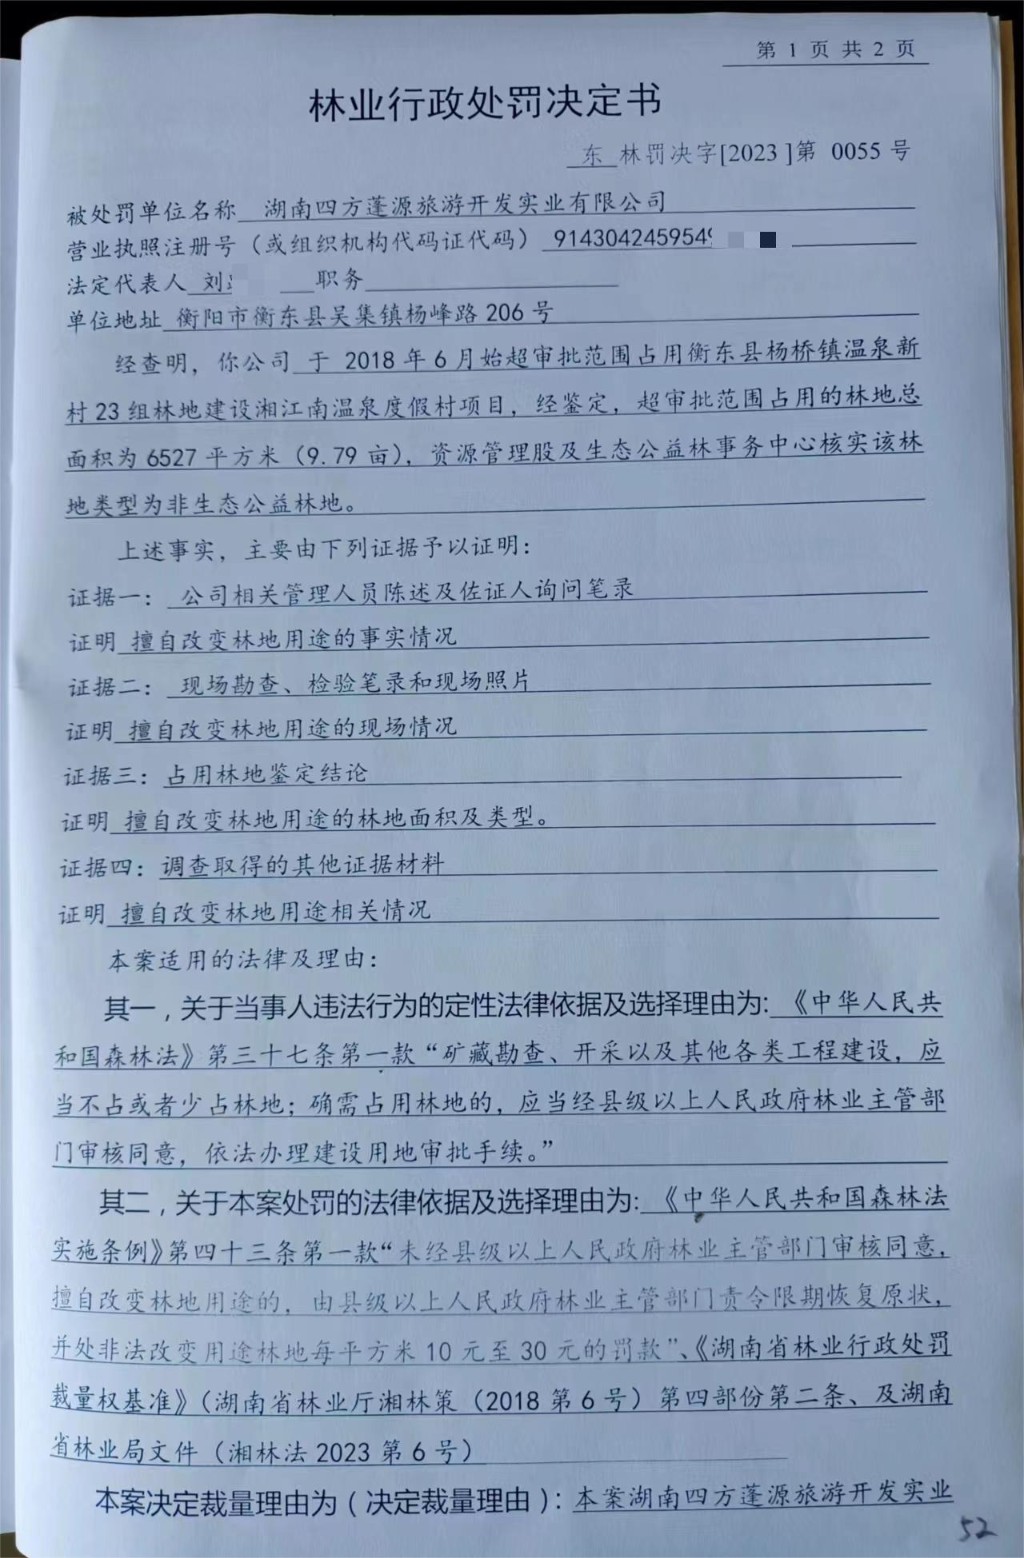 第 1 页 共 2 页
林业行政处罚决定书
东 林罚决字[2023 ]第 0055 号
被处罚单位名称 湖南四方蓬源旅游开发实业有限公司
营业执照注册号（或组织机构代码证代码） 9143042459549
法定代表人 刘 职务
单位地址 衡阳市衡东县吴集镇杨峰路 206 号
经查明，你公司 于 2018 年 6 月始超审批范围占用衡东县杨桥镇温泉新
村 23 组林地建设湘江南温泉度假村项目，经鉴定，超审批范围占用的林地总
面积为 6527 平方米（9.79 亩），资源管理股及生态公益林事务中心核实该林
地类型为非生态公益林地。
上述事实，主要由下列证据予以证明：
证据一： 公司相关管理人员陈述及佐证人询问笔录
证明 擅自改变林地用途的事实情况
证据二： 现场勘查、检验笔录和现场照片
证明 擅自改变林地用途的现场情况
证据三：占用林地鉴定结论
证明 擅自改变林地用途的林地面积及类型。
证据四：调查取得的其他证据材料
证明 擅自改变林地用途相关情况
本案适用的法律及理由：
其一，关于当事人违法行为的定性法律依据及选择理由为: 《中华人民共
和国森林法》第三十七条第一款“矿藏勘查、开采以及其他各类工程建设，应
当不占或者少占林地；确需占用林地的，应当经县级以上人民政府林业主管部
门审核同意，依法办理建设用地审批手续。”
其二，关于本案处罚的法律依据及选择理由为: 《中华人民共和国森林法
实施条例》第四十三条第一款“未经县级以上人民政府林业主管部门审核同意，
擅自改变林地用途的，由县级以上人民政府林业主管部门责令限期恢复原状，
并处非法改变用途林地每平方米 10 元至 30 元的罚款”、《湖南省林业行政处罚
裁量权基准》（湖南省林业厅湘林策（2018 第 6 号）第四部份第二条、及湖南
省林业局文件（湘林法 2023 第 6 号）
本案决定裁量理由为（决定裁量理由）: 本案湖南四方蓬源旅游开发实业
52